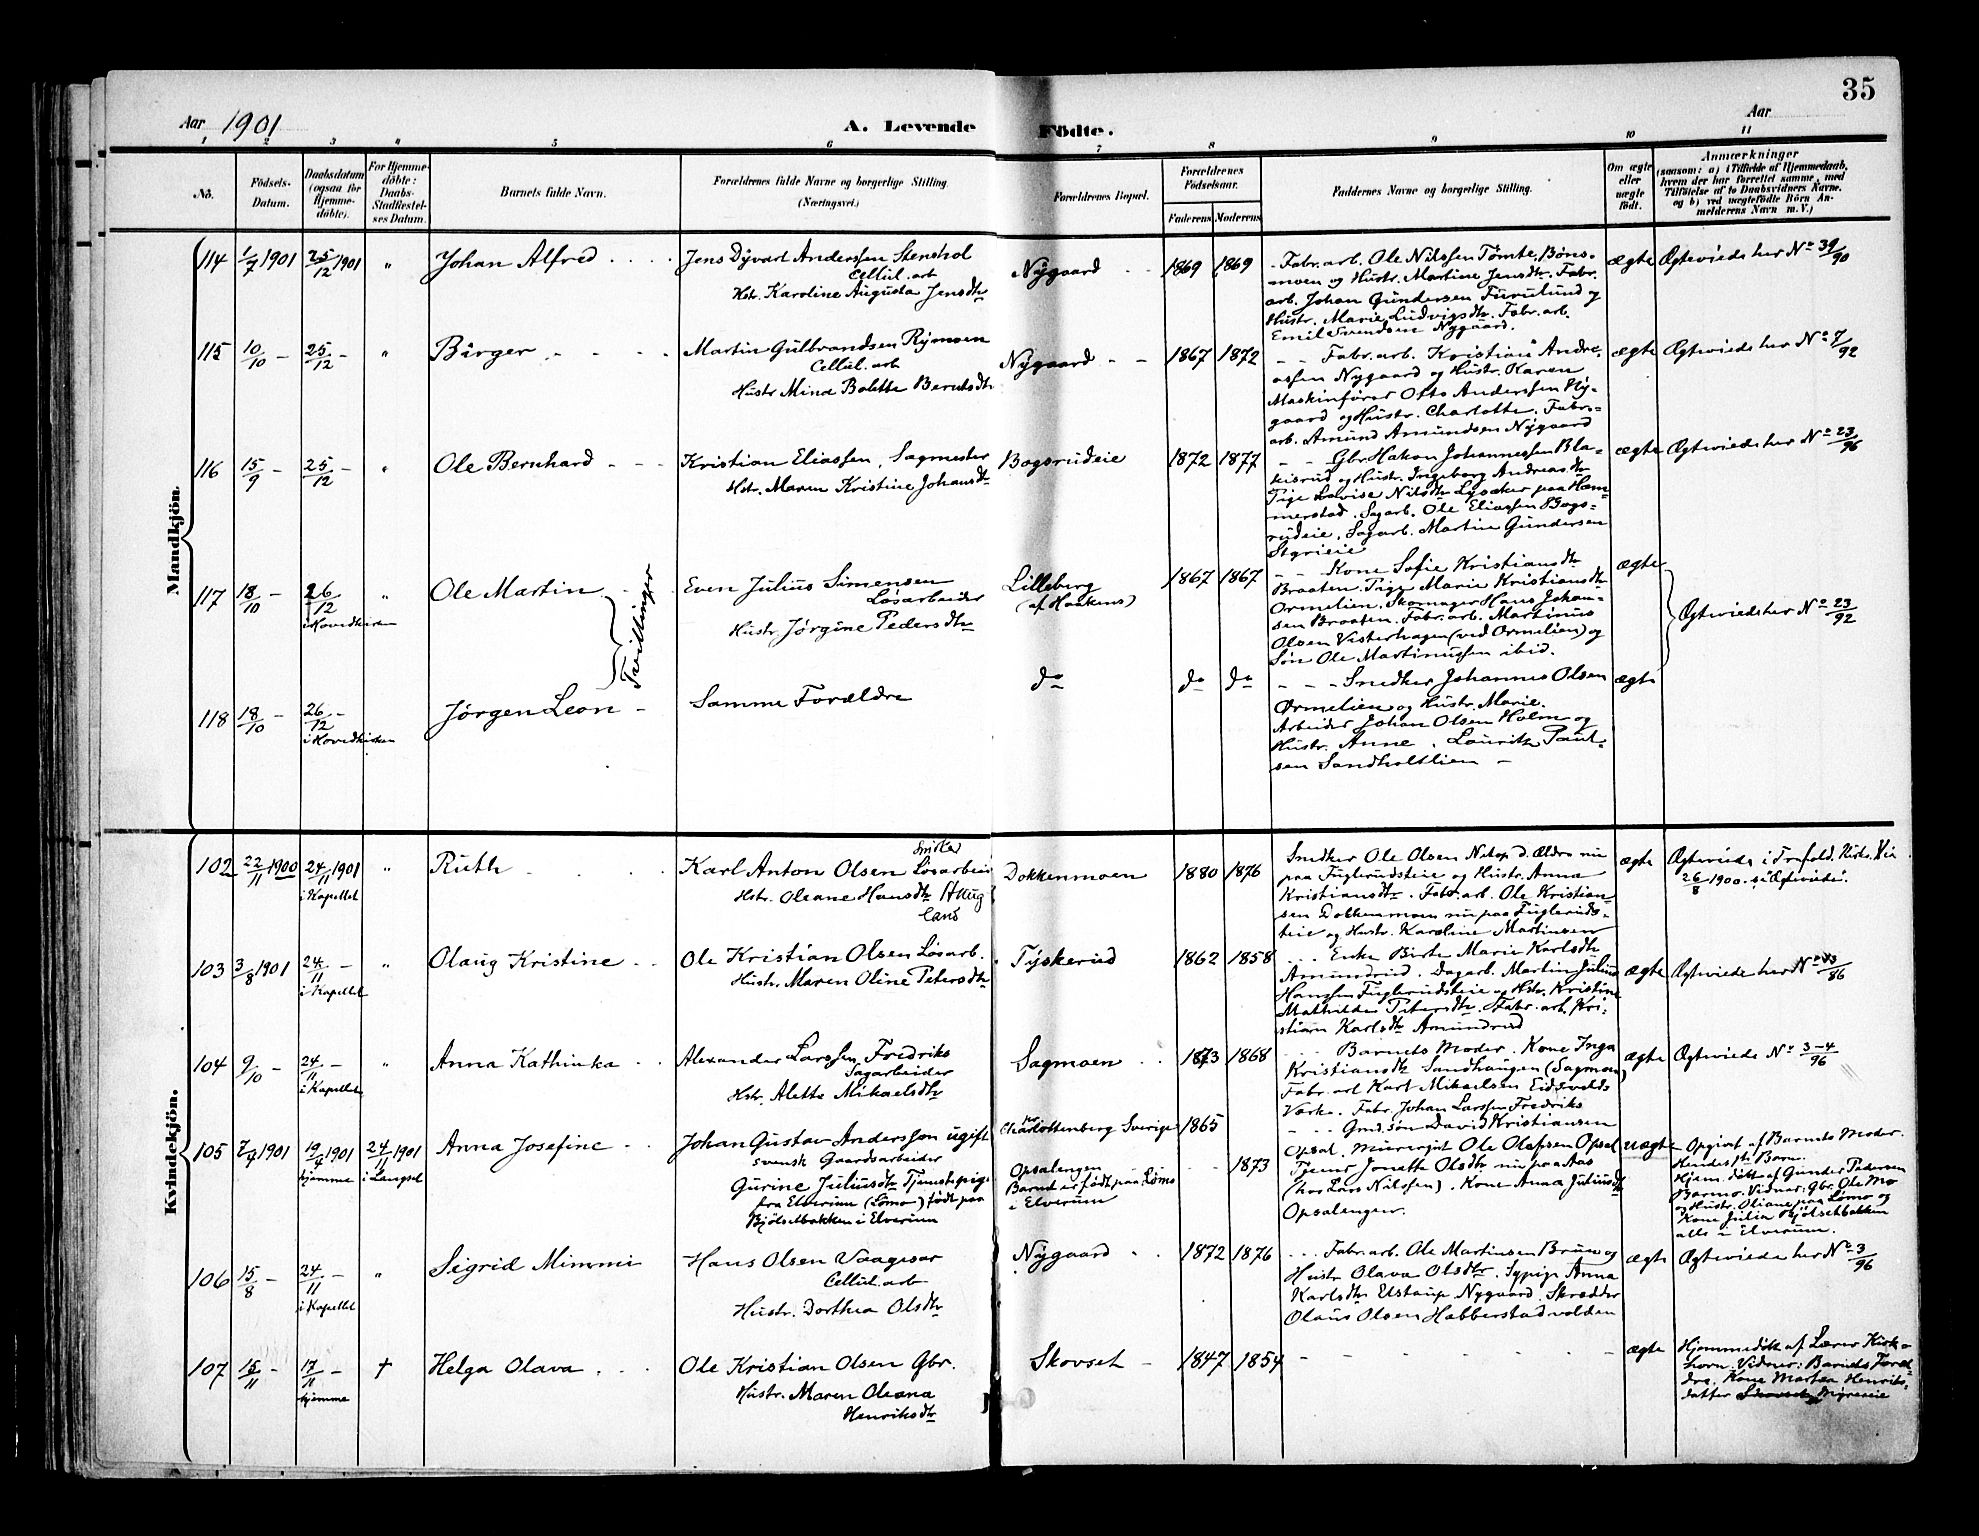 35
Aar 1901
A. Levende Födte.
Aar
1 2 3 4 5 6 7 8 9 10 11
No.
Födsels-Datum.
Daabsdatum (ogsaa for Hjemme-döbte).
For Hjemme-döbte: Daabs-Stadfæstel-ses Datum.
Barnets fulde Navn.
Forældrenes fulde Navne og borgerlige Stilling.
(Næringsvei.)
Forældrenes Bopæl.
Forældrenes Födselsaar.
Faderens Moderens
Faddernes Navne og borgerlige Stilling.
Om ægte eller uægte födt.
Anmærkninger
(saasom: a) i Tilfælde af Hjemmedaab,
hvem der har forrettet samme, med
Tilföielse af to Daabsvidners Navne.
og b) ved uægtefödte Börn An-
melderens Navn m. V.)
Mandkjön.
114 1/7 1901 25/12 1901 " Johan Alfred
Jens Dyvart Andersen Stenshol
Cellul. arb
Hstr. Karoline Augusta Jensdtr
Nygaard 1869 1869
Fabr. arb. Ole Nilssen Tömte, Böns-
moen og Hustr. Martine Jensdtr. Fabr.
arb. Johan Gundersen Furulund og
Hustr. Marie Ludvigsdtr. Fabr. arb.
Emil Svendsen Nygaard.
ægte Ægteviede her No 39/90
115 10/10 - 25/12 - " Bürger
Martin Gulbrandsen Rymoen
Cellul. arb
Hustr Mina Bolette Berntsdtr
Nygaard 1867 1872
Fabr. arb. Kristian Andre-
assen Nygaard og Hustr. Karen
Maskinfører Otto Andersen Ny-
gaard og Hustr. Charlotte. Fabr.-
arb. Amund Amundsen Nygaard
ægte Ægteviede her No 7/92
116 15/9 - 25/12 - " Ole Bernhard
Kristian Eliassen, Sagmester
Hstr. Maren Kristine Johansdtr
Bogsrudeie 1872 1877
Gbr Hakon Johannessen Bla-
keisrud og Hustr. Ingeborg Andreasdtr
Pige Lovise Nilsdtr Lysaker paa Ham-
merstad. Sagarb. Ole Eliassen Bogs-
rudeie, Sagarb. Martin Gundersen
Styrieie
ægte Ægteviede her No 23/96
117 18/10 - 26/12 i Hovedkirken " Ole Martin
Tvillinger
Even Julius Simensen
Løsarbeider
Hustr Jørgine Pedersdtr
Lilleberg
(af Haakens)
1867 1867
Kone Sofie Kristiansdtr
Braaten. Pige Marie Kristiansdtr
Ormelien. Skomager Hans Johan-
sen Braaten. Fabr. arb. Martinus
Olsen Vesterhagen (ved Ormelien) og
Søn Ole Martinussen ibid.
ægte
Ægteviede her No 23/92
118 18/10 - 26/12 - i Hovedkirken Jørgen Leon
Samme Forældre
do do do
Snedker Johannes Olsen
Ormelien og Hustr. Marie.
Arbeider Johan Olsen Holm og
Hustr. Anne. Lauritz Paul-
sen Sandholtlien -
ægte
Kvindekjön.
102 22/11 1900 24/11 1901 i Kapellet " Ruth
Karl Anton Olsen Løsarbeid
Hstr. Oleane Hansdtr
Dokkenmoen 1880 1876
Snedker Ole Olsen d. Ældre nu
paa Fuglerudseie og Hustr. Anna
Kristiansdtr. Fabr. arb. Ole Kristian-
sen Dokkenmoen nu paa Fugleruds-
eie og Hustr. Karoline Martinsen
ægte Ægteviede i
26/8 1900. s. "Ægteviede".
103 3/8 1901 24/11 - i Kapellet " Olaug Kristine
Ole Kristian Olsen Løsarb.
Hustr. Maren Oline Petersdtr
Tyskerud 1862 1858
Enke Birte Marie Karlsdtr
Amundrud. Dagarb. Martin Julius
Hansen Fuglerudseie og Hstr. Kristine
Mathilde Petersdtr. Fabr. arb. Kri-
stian Karlsdtr Amundrud
ægte Ægteviede her No 13/86
104 9/10 - 24/11 - i Kapellet " Anna Kathinka
Alexander Larssen Fredriks
Sagarbeider
Hstr. Alette Mikaelsdtr
Sagmoen 1873 1868
Barnets Moder. Kone Inga
Kristiansdtr Sandhaugen (Sagmoen)
Fabr. arb Karl Mikaelsen Eidsvolds
Værk. Fabr. Johan Larssen Fredriks
Gmd. søn David Kristiansen
ægte Ægteviede No 3-4/96
105 7/4 1901 19/4 1901 hjemme 24/11 1901 i Langset Anna Josefine
Johan Gustav Andersson ugift
svensk Gaardsarbeider
Gurine Juliusdtr Tjenestepige
fra Elverum (Lömo) født paa
Bjölsetbakken i Elverum
Charlottenberg Sverige 1865
Opsalengen
Barnet er født paa Lömo
i Elverum
1873
Opsal. Murergut Ole Olafsen Opsal
Tjener Jonette Olsdtr nu paa Aas
(hos Lars Nilssen). Kone Anna Juliusdtr
Opsalengen.
uægte Opgivet af Barnets Moder.
Hendes Barn.
Hjem. døbt af Gunder Pedersen
Barmo. Vidner: Gbr. Ole Mo
og Hustr. Oliane paa Lömo og
Kone Julia Bjölsetbakken
alle i Elverum.
106 15/8 - 24/11 - i Kapellet " Sigrid Mimmi
Hans Olsen Vaagesar
Cellul. arb
Hustr. Dorthea Olsdtr
Nygaard 1872 1876
Fabr. arb. Ole Martinsen Bruu og
Hustr Olava Olsdtr. Sypige Anna
Karlsdtr Elstuep Nygaard. Skrædder
Olaus Olsen Habberstadvolden
ægte Ægteviede her No 3/96
107 15/11 - 17/11 - hjemme † Helga Olava
Ole Kristian Olsen Gbr.
Hustr. Maren Oleana
Henriksdtr
Skovset 1847 1854
ægte Hjemmedøbt af Lærer Kirk-
horn. Vidner: Barnets Foræl-
dre, Kone Martea Henriks-
datter Skovset Myreseie